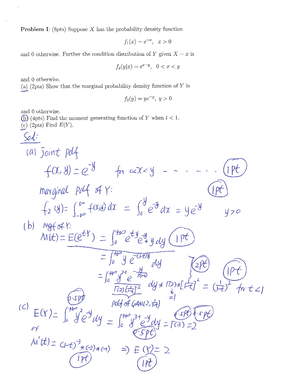 Problem I: (8pts) Suppose X has the probability density function
f₁(x) = e⁻ˣ, x > 0
and 0 otherwise. Further the condition distribution of Y given X = x is
f₂(y|x) = eˣ⁻ʸ, 0 < x < y
and 0 otherwise.
(a) (2pts) Show that the marginal probability density function of Y is
f₂(y) = ye⁻ʸ, y > 0
and 0 otherwise.
(b) (4pts) Find the moment generating function of Y when t < 1.
(c) (2pts) Find E(Y).
Sol:
(a) joint pdf
f(x,y) = e⁻ʸ for 0<x<y - - - - - - 1pt
marginal pdf of Y: 1pt
f₂(y) = ∫ f(x,y) dx = ∫₀ʸ e⁻ʸ dx = ye⁻ʸ y>0
(b) mgf of Y:
M(t) = E(e^{tY}) = ∫₀^{+∞} e^{ty} e⁻ʸ y dy 1pt
2pt 1pt
for t<1
(c) 0.5pt 0.5pt 0.5pt
E(Y) = ∫₀^{+∞} y² e⁻ʸ dy
0.5pt
or
M'(t) = (1-t)⁻³ *(-2)*(-1) ⇒ E(Y) = 2
1pt 1pt